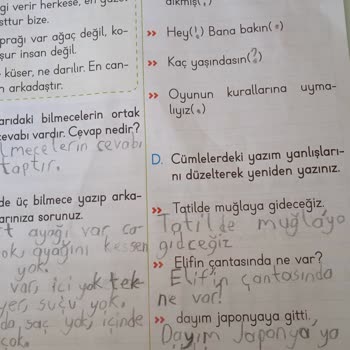 gi verir herkese, en
sttur bize.
prağı var ağaç değil, ko-
şur insan değil.
küser, ne darılır. En can-
n arkadaştır.
arıdaki bilmecelerin ortak
evabı vardır. Cevap nedir?
lmecelerin cevabı
taptır.
de üç bilmece yazıp arka-
arınıza sorunuz.
t ayağı var ca-
ok, ayağını kessen
yok.
var, içi yok tek-
yer, suçu yok.
da saç yok, içinde
çok.
»» Hey(!) Bana bakın(.)
»» Kaç yaşındasın(?)
»» Oyunun kurallarına uyma-
lıyız(.)
D. Cümlelerdeki yazım yanlışları-
nı düzelterek yeniden yazınız.
»» Tatilde muğlaya gideceğiz.
Tatilde muğla'ya
gidceğiz
»» Elifin çantasında ne var?
Elif'in çantasında
ne var?
»» dayım japonyaya gitti.
Dayım Japonya'ya